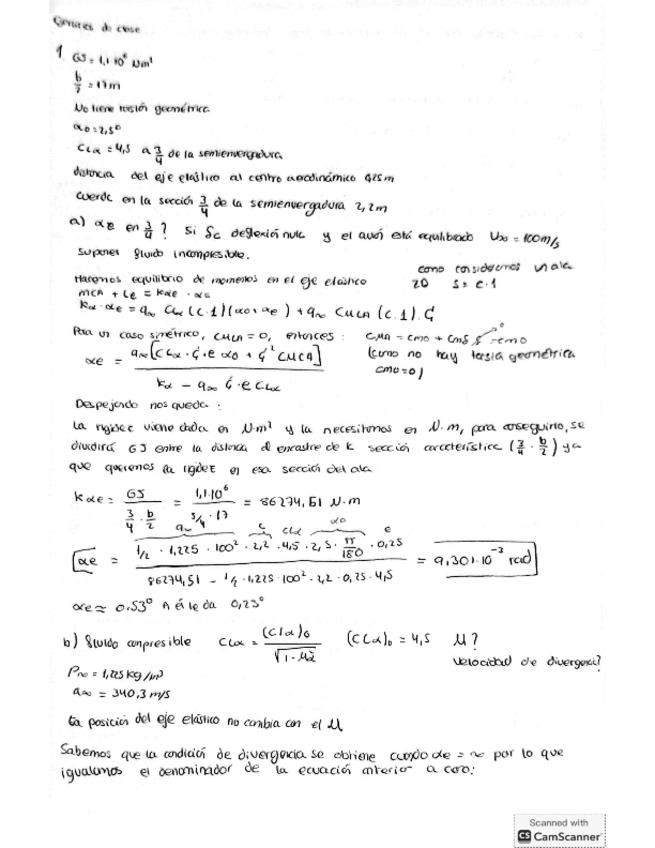 de clase
1. GJ = 1,1·10⁶ Nm²
b/2 = 17m
No tiene torsión geométrica
α0 = 2,5º
CLα = 4,5 a 3/4 de la semienvergadura
distancia del eje elástico al centro aerodinámico 0,25m
cuerda en la sección 3/4 de la semienvergadura 2,2m
a) αe en 3/4? Si δc deflexión nula y el avión está equilibrado U∞ = 100m/s
suponer fluido incompresible.
Hacemos equilibrio de momentos en el eje elástico
como consideremos un ala
2D S = c·1
MCA + Le = Kαe · αe
kα·αe = q∞ CLα (c·1)(α0+αe) + q∞ CMCA (c·1)·c
Para un caso simétrico, CMCA = 0, entonces:
CMA = CM0 + CMδ δ = CM0
(como no hay torsión geométrica
CM0 = 0)
αe = q∞[CLα · c · e α0 + c² CMCA] / kα - q∞ c · e CLα
Despejando nos queda:
La rigidez viene dada en N·m² y la necesitamos en N·m, para conseguirlo, se
dividirá GJ entre la distancia al encastre de la sección característica (3/4 · b/2) ya
que queremos la rigidez en esa sección del ala
Kαe = GJ / (3/4 · b/2) = 1,1·10⁶ / (3/4 · 17) = 86274,51 N·m
q∞ c CLα α0 e
αe = 1/2 · 1,225 · 100² · 2,2 · 4,5 · 2,5 · π/180 · 0,25 / 86274,51 - 1/2 · 1,225 · 100² · 2,2 · 0,25 · 4,5 = 9,301·10⁻³ rad
αe ≈ 0,53º A él le da 0,23º
b) fluido compresible CLα = (CLα)0 / √(1-M∞²) (CLα)0 = 4,5 M?
velocidad de divergencia?
ρ∞ = 1,225 kg/m³
a∞ = 340,3 m/s
La posición del eje elástico no cambia con el M
Sabemos que la condición de divergencia se obtiene cuando αe = ∞ por lo que
igualamos el denominador de la ecuación anterior a cero:
Scanned with
CS CamScanner